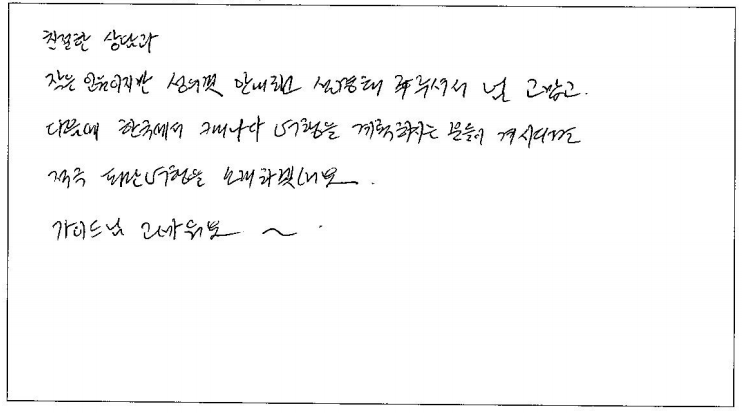 친절한 상담과
작은 인원이지만 성의껏 안내하고 설명해 주셔서 넘 고맙고.
다음에 한국에서 캐나다 여행을 계획하자는 분들이 계시다면
적극 여행을 하겠네요.
가이드님 고마워요 ~